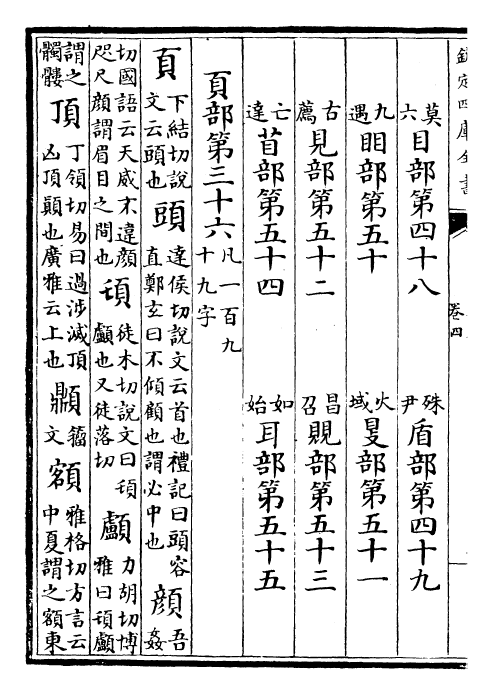 欽定四庫全書 卷四
莫六目部第四十八 殊尹盾部第四十九
九遇䀠部第五十 火域𥄎部第五十一
古薦見部第五十二 昌召覞部第五十三
亡達苜部第五十四 如始耳部第五十五
頁部第三十六 凡一百九十九字
頁 下結切說文云頭也 頭 達侯切說文云首也禮記曰頭容直鄭玄曰不傾顧也謂必中也 顔 吾姦
切國語云天威不違顔咫尺顔謂眉目之間也 𩑒 徒木切說文曰𩑒顱也又徒落切 顱 力胡切博雅曰𩑒顱
謂之髑髏 頂 丁領切易曰過涉滅頂凶頂顛也廣雅云上也 𩕢 籀文 額 雅格切方言云中夏謂之額東